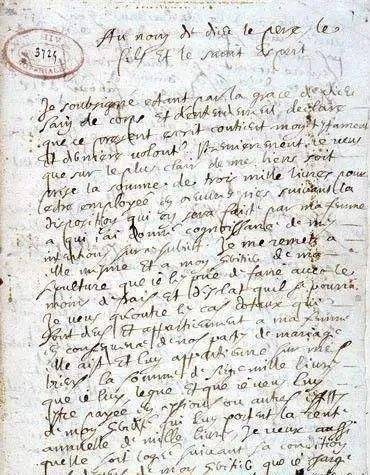 3725
Au nom de dieu le pere le
fils et le saint esprit
Je soubsigné estant par la grace de dieu
sain de corps et d'entendement, declare
que ce present escrit contient mon testament
et derniere volonté. Premierement je veus
que sur le plus clair de mes biens soit
prise la somme de trois mille livres pour
estre employée en œuvres pies suivant la
disposition qui en sera faite par ma femme
a qui j'ai donné cognoissance de mes
intentions sur ce subiect. Je me remets a
elle mesme et a mon heritier de ma
sepulture que je les prie de faire avec le
moins de frais et d'esclat qu'il se pourra
Je veus qu'outre le cas dotaux qui
sont deus et appartiennent a ma femme
en consequence de nos pactes de mariage
elle ait et luy appartienne sur mes
biens la somme de mille livres
que je luy legue et que je veus luy
estre payée en pensions ou autres effets
de mon heritier qui luy portent la rente
annuelle de mille livres. Je veux aussi
qu'elle soit logée suivant sa condition
de mon heritier que je charge